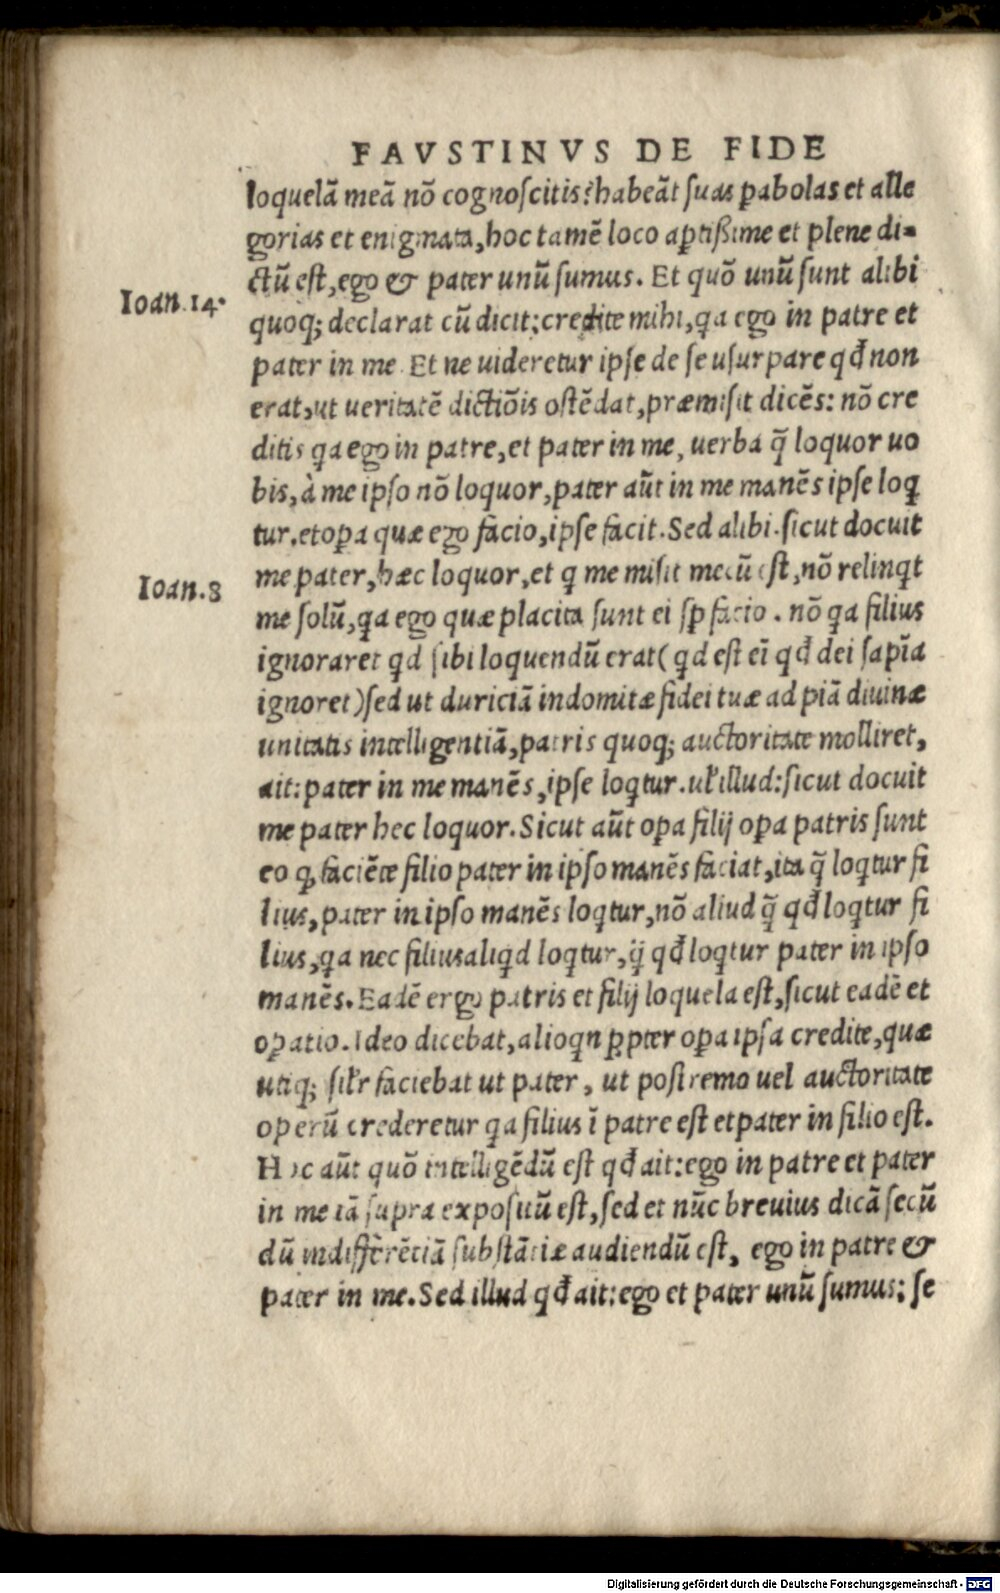 FAVSTINVS DE FIDE
loquelā meā nō cognoscitis? habeāt suas ꝑabolas et alle
gorias et enigmata, hoc tamē loco aptißime et plene di-
ctū est, ego & pater unū sumus. Et quō unū sunt alibi
Ioan. 14.
quoq; declarat cū dicit: credite mihi, qa ego in patre et
pater in me. Et ne uideretur ipse de se usurpare qđ non
erat, ut ueritatē dictiōis ostēdat, præmisit dicēs: nō cre
ditis qa ego in patre, et pater in me, uerba q̄ loquor uo
bis, à me ipso nō loquor, pater aūt in me manēs ipse loq
tur. et oꝑa quæ ego facio, ipse facit. Sed alibi. sicut docuit
Ioan. 8
me pater, hæc loquor, et q me misit mecū est, nō relinqt
me solū, qa ego quæ placita sunt ei sꝑ facio. nō qa filius
ignoraret qd sibi loquendū erat (qd est eī qđ dei sapīa
ignoret) sed ut duriciā indomitæ fidei tuæ ad piā diuinæ
unitatis intelligentiā, patris quoq; auctoritate molliret,
ait: pater in me manēs, ipse loqtur. uł illud: sicut docuit
me pater hec loquor. Sicut aūt oꝑa filij oꝑa patris sunt
eo ꝙ faciēte filio pater in ipso manēs faciat, ita q̄ loqtur fi
lius, pater in ipso manēs loqtur, nō aliud q̄ qđ loqtur fi
lius, qa nec filius aliqd loqtur, q̄ qđ loqtur pater in ipso
manēs. Eadē ergo patris et filij loquela est, sicut eadē et
oꝑatio. Ideo dicebat, alioqn ꝓpter oꝑa ipsa credite, quæ
utiq; siłr faciebat ut pater, ut postremo uel auctoritate
operū crederetur qa filius ī patre est et pater in filio est.
Hoc aūt quō intelligēdū est qđ ait: ego in patre et pater
in me iā supra expositū est, sed et nūc breuius dicā secū
dū indifferētiā substātiæ audiendū est, ego in patre &
pater in me. Sed illud qđ ait: ego et pater unū sumus: se
Digitalisierung gefördert durch die Deutsche Forschungsgemeinschaft - DFG